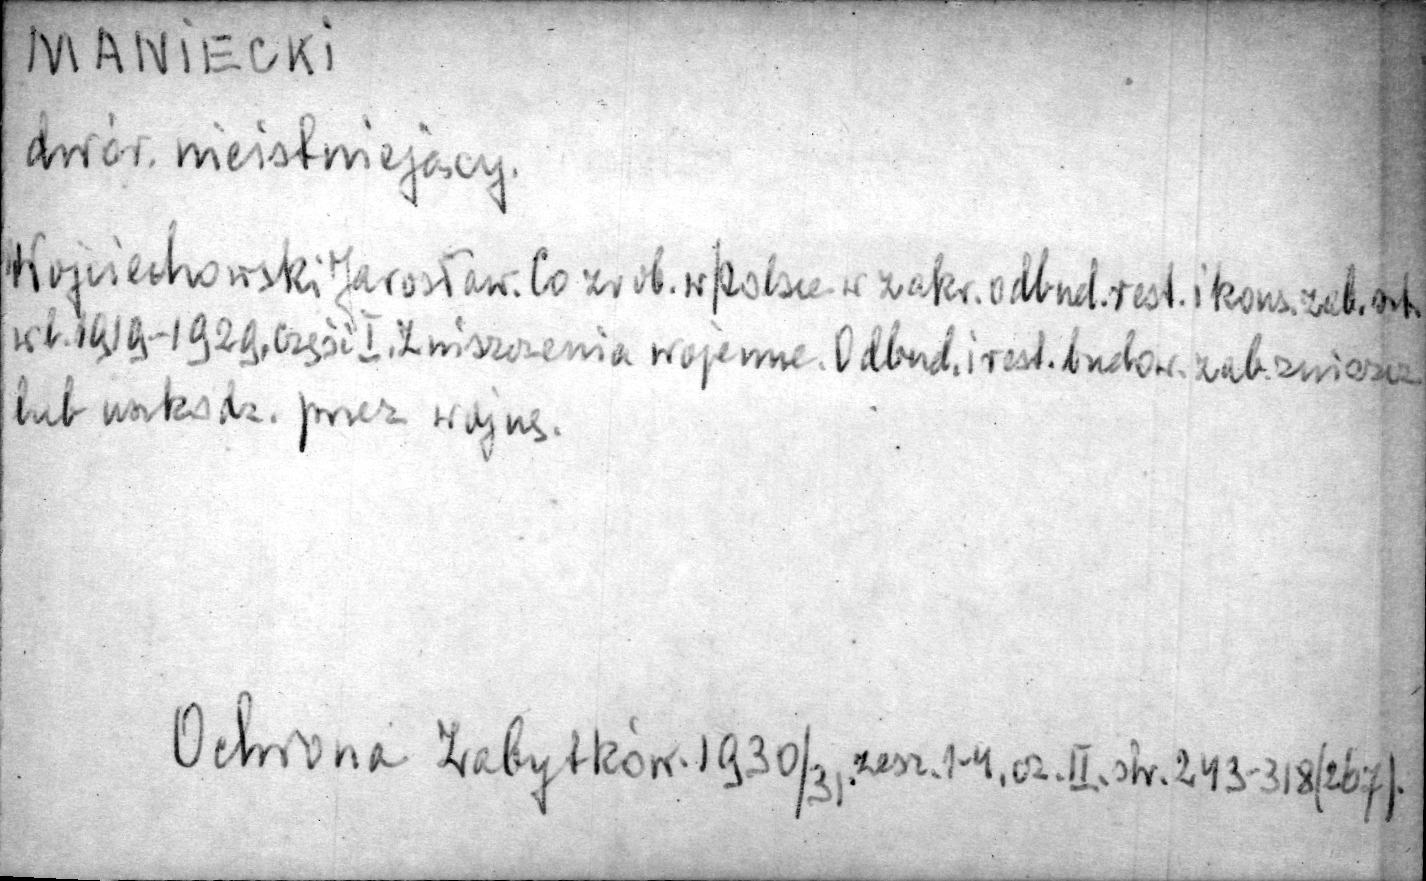 MANIECKI
dwór. nieistniejący.
Wojciechowski Jarosław. Co zrob. w Polsce w zakr. odbud. rest. i kons. zab. szt.
w l. 1919-1929, Część I. Zniszczenia wojenne. Odbud. i rest. budow. zab. zniszcz
lub uszkodz. przez wojnę.
Ochrona Zabytków. 1930/31, zesz. 1-4, cz. II. str. 243-318 (267).